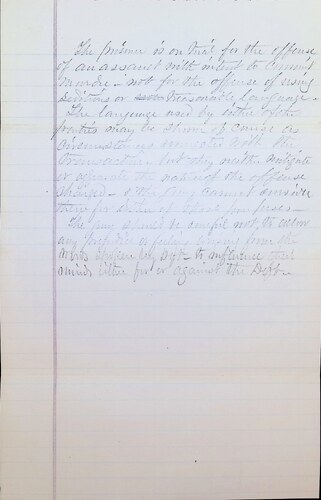 The prisoner is on trial for the offense
of an assault with intent to commit
Murder - not for the offense of using
seditious or treasonable language -
The language used by either of the
parties may be shown of course as
circumstances connected with the
transaction - but they neither mitigate
or aggravate the nature of the offense
charged - & the jury cannot consider
them for either of these purposes -
The jury should be careful not to allow
any prejudice or feeling arising from the
words spoken by to influence their
minds either for or against the Deft -